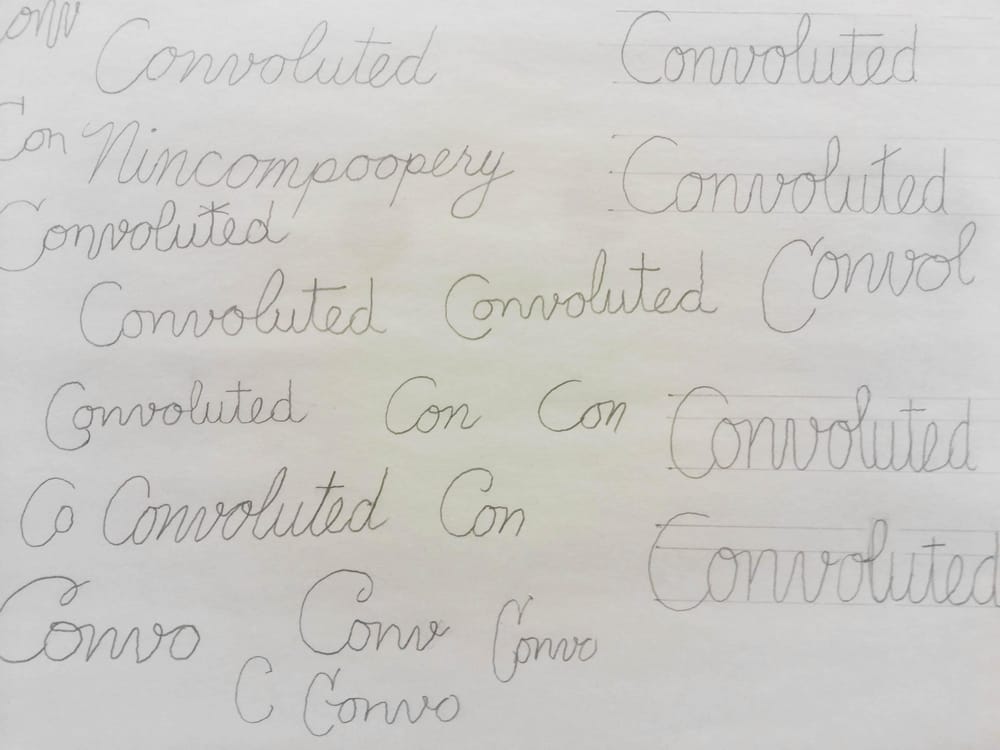 Conv
Convoluted Convoluted
Con Nincompoopery Convoluted
Convoluted
Convoluted Convoluted Convol
Convoluted Con Con Convoluted
Co Convoluted Con Convoluted
Convo Conv Convo
C Convo